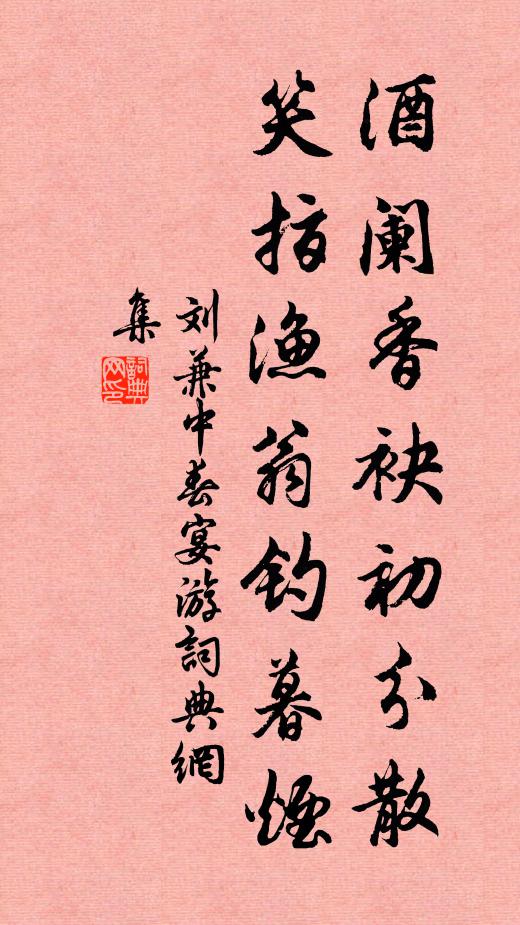 酒阑香袂初分散
笑指渔翁钓暮烟
刘兼中春宴游詞典網
集
詞典
网印